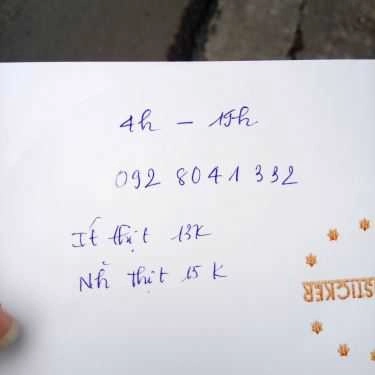 4h - 15h
092 8041 332
Ít thịt 13K
Nh` thịt 15 K
STICKER